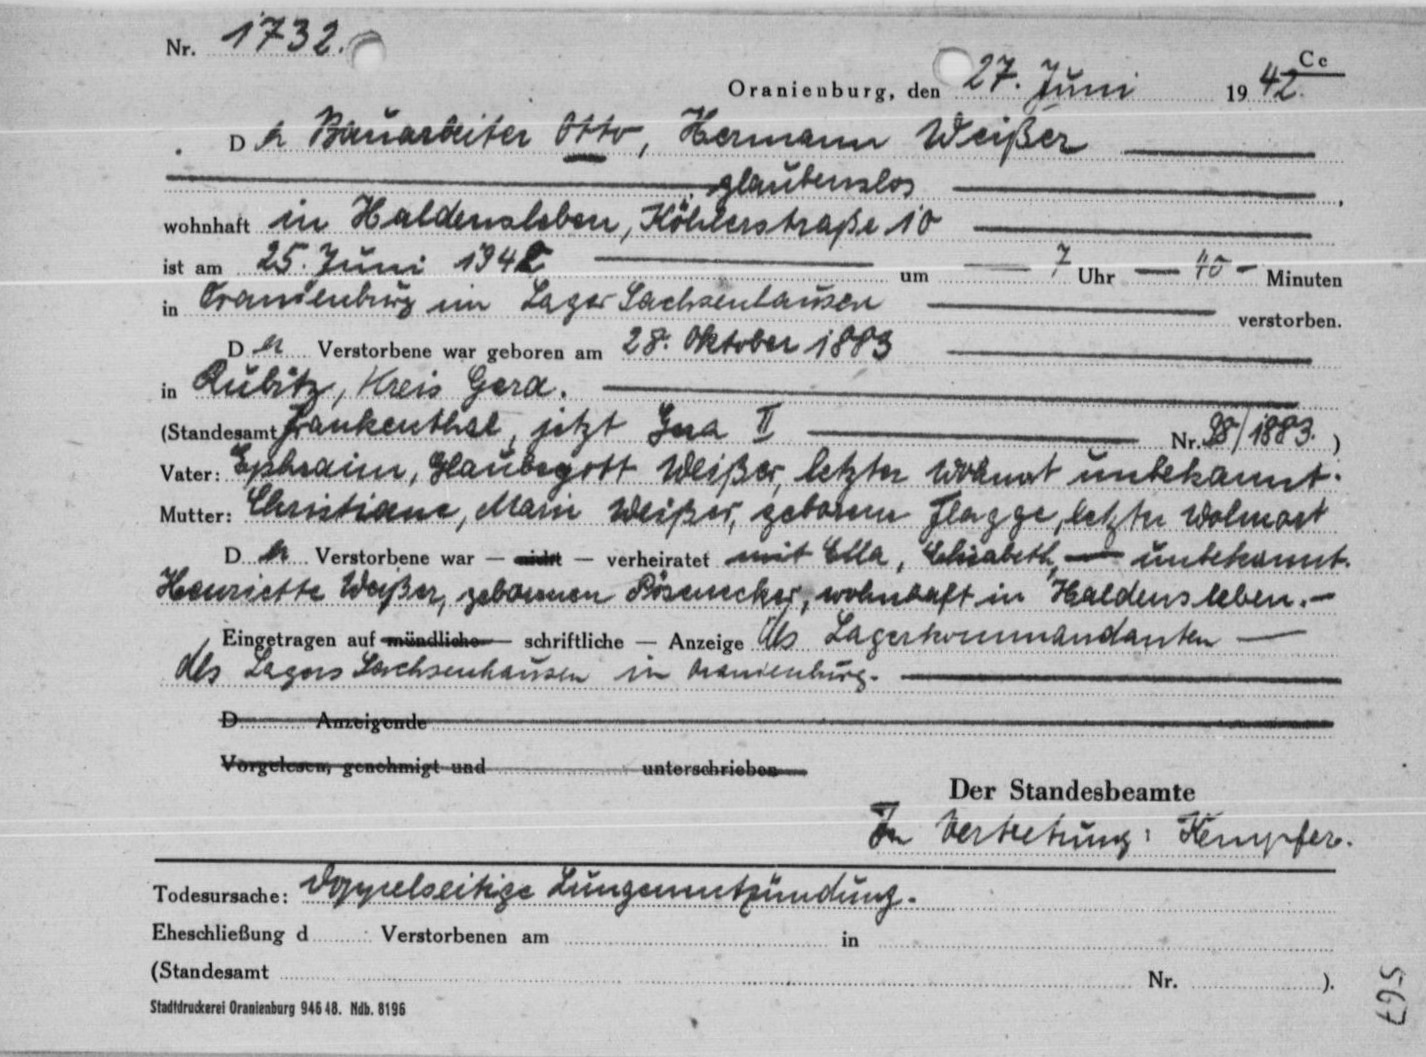 Nr. 1732.
Cc
Oranienburg, den 27. Juni 1942.
Der Bauarbeiter Otto, Hermann Weißer
glaubenslos
wohnhaft in Haldensleben, Köhlerstraße 10
ist am 25. Juni 1942 um 7 Uhr 40 Minuten
in Oranienburg im Lager Sachsenhausen verstorben.
Der Verstorbene war geboren am 28. Oktober 1883
in Rubitz, Kreis Gera.
(Standesamt Frankenthal, jetzt Gera II Nr. 98/1883.)
Vater: Ephraim, Glaubegott Weißer, letzter Wohnort unbekannt.
Mutter: Christiane, Marie Weißer, geborene Flagge, letzter Wohnort
Der Verstorbene war — nicht — verheiratet mit Ella, Elisabeth, — unbekannt.
Henriette Weißer, geborenen Pösenecker, wohnhaft in Haldensleben. —
Eingetragen auf mündliche — schriftliche — Anzeige des Lagerkommandanten
des Lagers Sachsenhausen in Oranienburg.
D Anzeigende
Vorgelesen, genehmigt und unterschrieben
Der Standesbeamte
In Vertretung: Kempfer.
Todesursache: Doppelseitige Lungenentzündung.
Eheschließung d Verstorbenen am in
(Standesamt Nr. ).
Stadtdruckerei Oranienburg 946 48. Ndb. 8196
567